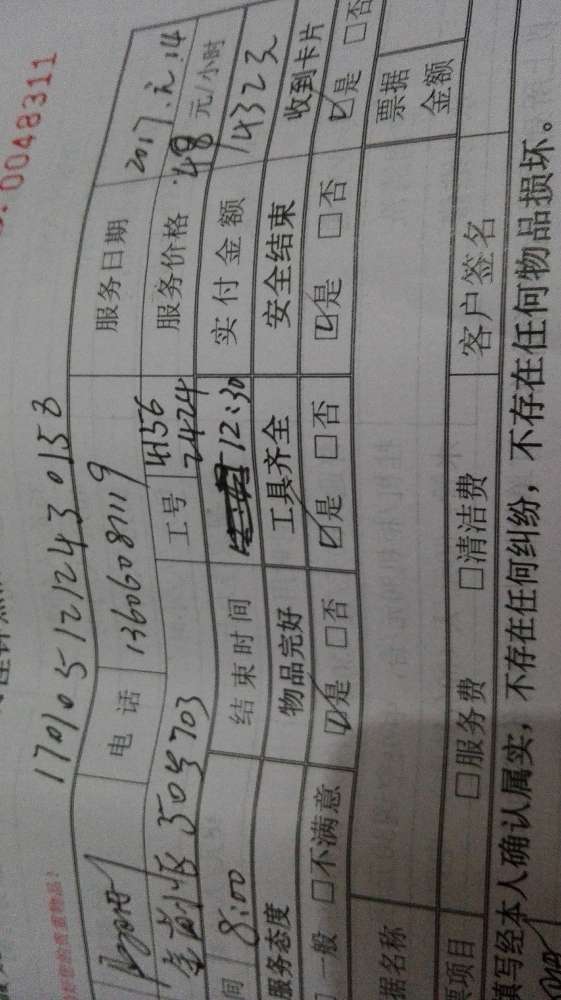 0048311
1701051212430153
电话 13606081119 服务日期 2017.元.14
503703 工号 4156 2424 服务价格 48 元/小时
间 8:00 结束时间 12:30 实付金额 1432元
服务态度 物品完好 工具齐全 安全结束 收到卡片
一般 □不满意 ☑是 □否 ☑是 □否 ☑是 □否 ☑是 □否
据名称 票据金额
票项目 □服务费 □清洁费 客户签名
填写经本人确认属实，不存在任何纠纷，不存在任何物品损坏。